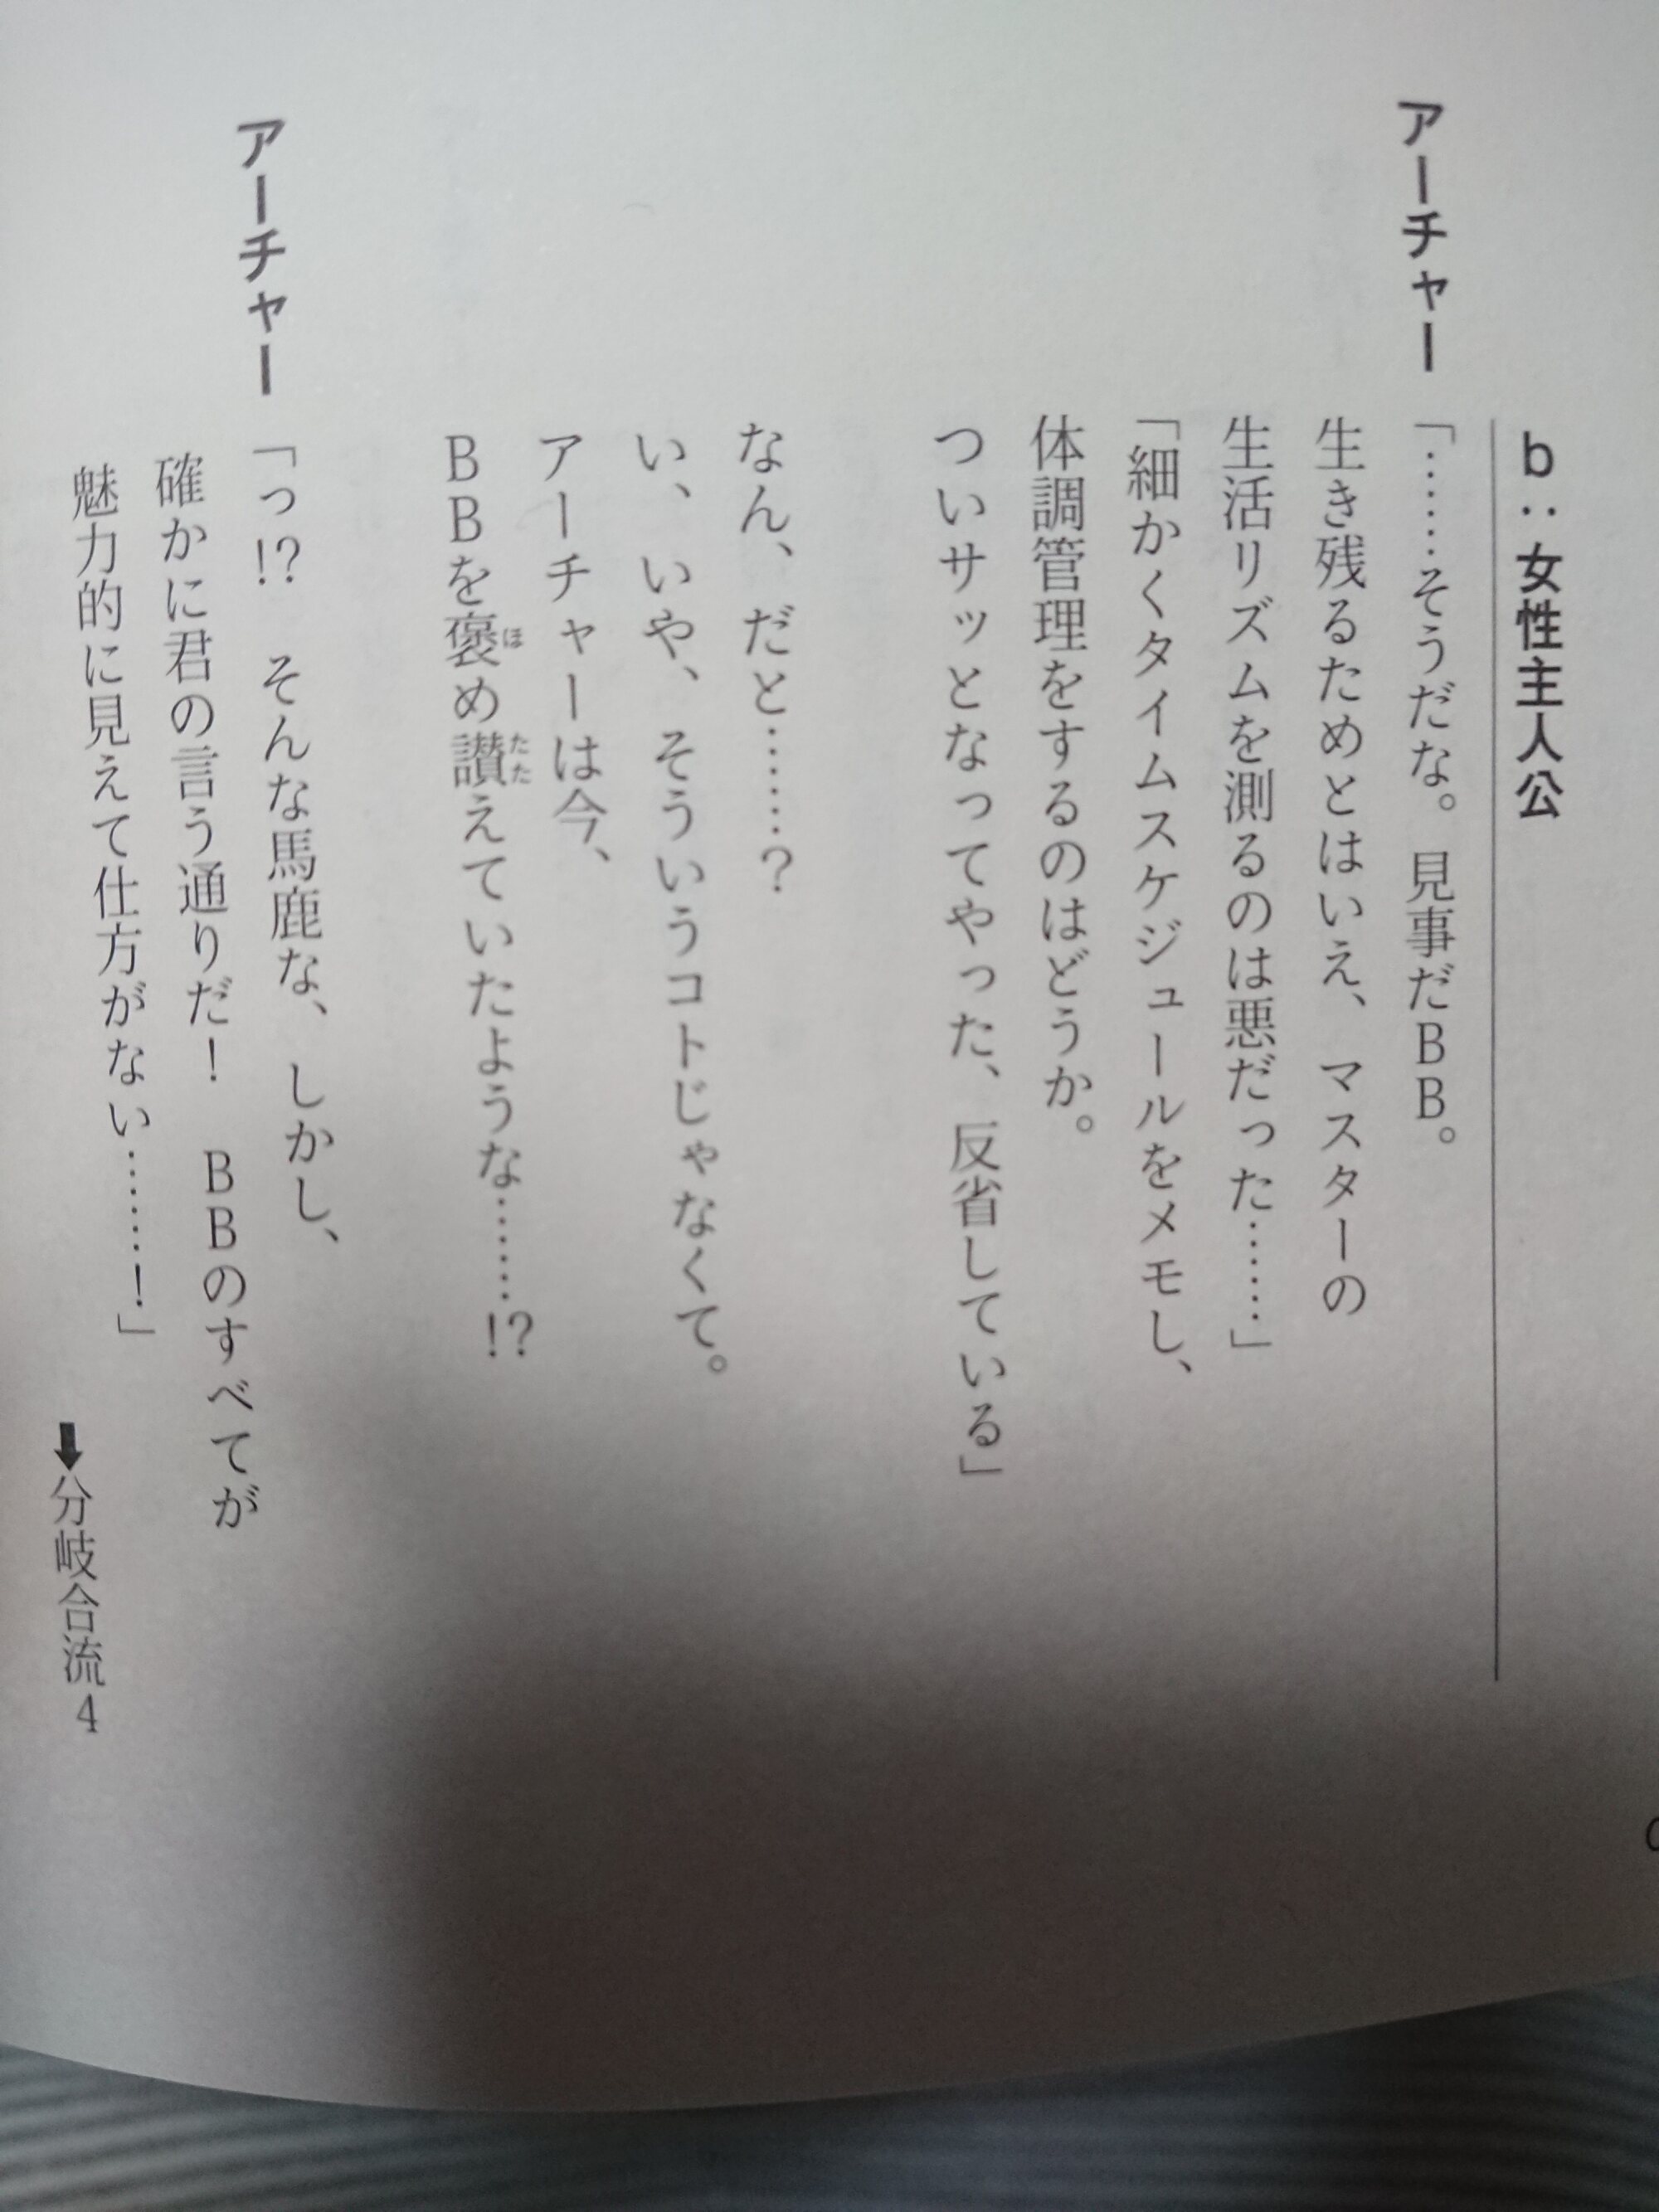 b：女性主人公
アーチャー「……そうだな。見事だBB。
生き残るためとはいえ、マスターの
生活リズムを測るのは悪だった……」
「細かくタイムスケジュールをメモし、
体調管理をするのはどうか。
ついサッとなってやった、反省している」
なん、だと……？
い、いや、そういうコトじゃなくて。
アーチャーは今、
BBを褒め讃えていたような……!?
アーチャー「っ!?　そんな馬鹿な、しかし、
確かに君の言う通りだ！　BBのすべてが
魅力的に見えて仕方がない……！」
➡分岐合流4